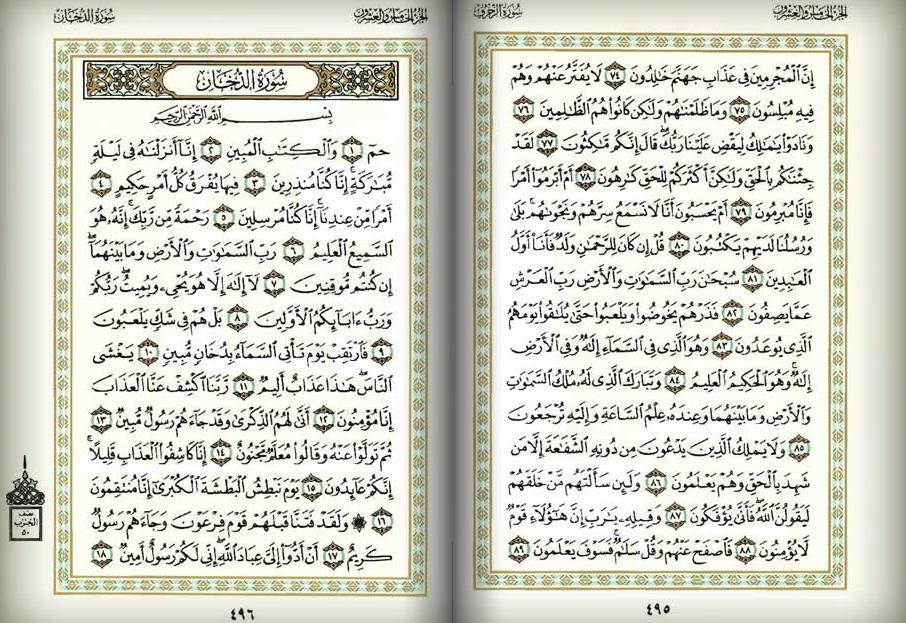 الجزء الخامس والعشرون سورة الزخرف
إِنَّ ٱلْمُجْرِمِينَ فِى عَذَابِ جَهَنَّمَ خَٰلِدُونَ ٧٤ لَا يُفَتَّرُ عَنْهُمْ وَهُمْ
فِيهِ مُبْلِسُونَ ٧٥ وَمَا ظَلَمْنَٰهُمْ وَلَٰكِن كَانُوا۟ هُمُ ٱلظَّٰلِمِينَ ٧٦
وَنَادَوْا۟ يَٰمَٰلِكُ لِيَقْضِ عَلَيْنَا رَبُّكَ ۖ قَالَ إِنَّكُم مَّٰكِثُونَ ٧٧ لَقَدْ
جِئْنَٰكُم بِٱلْحَقِّ وَلَٰكِنَّ أَكْثَرَكُمْ لِلْحَقِّ كَٰرِهُونَ ٧٨ أَمْ أَبْرَمُوٓا۟ أَمْرًا
فَإِنَّا مُبْرِمُونَ ٧٩ أَمْ يَحْسَبُونَ أَنَّا لَا نَسْمَعُ سِرَّهُمْ وَنَجْوَىٰهُم ۚ بَلَىٰ
وَرُسُلُنَا لَدَيْهِمْ يَكْتُبُونَ ٨٠ قُلْ إِن كَانَ لِلرَّحْمَٰنِ وَلَدٌ فَأَنَا۠ أَوَّلُ
ٱلْعَٰبِدِينَ ٨١ سُبْحَٰنَ رَبِّ ٱلسَّمَٰوَٰتِ وَٱلْأَرْضِ رَبِّ ٱلْعَرْشِ
عَمَّا يَصِفُونَ ٨٢ فَذَرْهُمْ يَخُوضُوا۟ وَيَلْعَبُوا۟ حَتَّىٰ يُلَٰقُوا۟ يَوْمَهُمُ
ٱلَّذِى يُوعَدُونَ ٨٣ وَهُوَ ٱلَّذِى فِى ٱلسَّمَآءِ إِلَٰهٌ وَفِى ٱلْأَرْضِ
إِلَٰهٌ ۚ وَهُوَ ٱلْحَكِيمُ ٱلْعَلِيمُ ٨٤ وَتَبَارَكَ ٱلَّذِى لَهُۥ مُلْكُ ٱلسَّمَٰوَٰتِ
وَٱلْأَرْضِ وَمَا بَيْنَهُمَا وَعِندَهُۥ عِلْمُ ٱلسَّاعَةِ وَإِلَيْهِ تُرْجَعُونَ
٨٥ وَلَا يَمْلِكُ ٱلَّذِينَ يَدْعُونَ مِن دُونِهِ ٱلشَّفَٰعَةَ إِلَّا مَن
شَهِدَ بِٱلْحَقِّ وَهُمْ يَعْلَمُونَ ٨٦ وَلَئِن سَأَلْتَهُم مَّنْ خَلَقَهُمْ
لَيَقُولُنَّ ٱللَّهُ ۖ فَأَنَّىٰ يُؤْفَكُونَ ٨٧ وَقِيلِهِۦ يَٰرَبِّ إِنَّ هَٰٓؤُلَآءِ قَوْمٌ
لَّا يُؤْمِنُونَ ٨٨ فَٱصْفَحْ عَنْهُمْ وَقُلْ سَلَٰمٌ ۚ فَسَوْفَ يَعْلَمُونَ ٨٩
٤٩٥
الجزء الخامس والعشرون سورة الدخان
سورة الدخان
بِسْمِ ٱللَّهِ ٱلرَّحْمَٰنِ ٱلرَّحِيمِ
حمٓ ١ وَٱلْكِتَٰبِ ٱلْمُبِينِ ٢ إِنَّآ أَنزَلْنَٰهُ فِى لَيْلَةٍ
مُّبَٰرَكَةٍ ۚ إِنَّا كُنَّا مُنذِرِينَ ٣ فِيهَا يُفْرَقُ كُلُّ أَمْرٍ حَكِيمٍ ٤
أَمْرًا مِّنْ عِندِنَآ ۚ إِنَّا كُنَّا مُرْسِلِينَ ٥ رَحْمَةً مِّن رَّبِّكَ ۚ إِنَّهُۥ هُوَ
ٱلسَّمِيعُ ٱلْعَلِيمُ ٦ رَبِّ ٱلسَّمَٰوَٰتِ وَٱلْأَرْضِ وَمَا بَيْنَهُمَآ ۖ
إِن كُنتُم مُّوقِنِينَ ٧ لَآ إِلَٰهَ إِلَّا هُوَ يُحْىِۦ وَيُمِيتُ ۖ رَبُّكُمْ
وَرَبُّ ءَابَآئِكُمُ ٱلْأَوَّلِينَ ٨ بَلْ هُمْ فِى شَكٍّ يَلْعَبُونَ
٩ فَٱرْتَقِبْ يَوْمَ تَأْتِى ٱلسَّمَآءُ بِدُخَانٍ مُّبِينٍ ١٠ يَغْشَى
ٱلنَّاسَ ۖ هَٰذَا عَذَابٌ أَلِيمٌ ١١ رَّبَّنَا ٱكْشِفْ عَنَّا ٱلْعَذَابَ
إِنَّا مُؤْمِنُونَ ١٢ أَنَّىٰ لَهُمُ ٱلذِّكْرَىٰ وَقَدْ جَآءَهُمْ رَسُولٌ مُّبِينٌ ١٣
ثُمَّ تَوَلَّوْا۟ عَنْهُ وَقَالُوا۟ مُعَلَّمٌ مَّجْنُونٌ ١٤ إِنَّا كَاشِفُوا۟ ٱلْعَذَابِ قَلِيلًا ۚ
إِنَّكُمْ عَآئِدُونَ ١٥ يَوْمَ نَبْطِشُ ٱلْبَطْشَةَ ٱلْكُبْرَىٰٓ إِنَّا مُنتَقِمُونَ
١٦ ۞ وَلَقَدْ فَتَنَّا قَبْلَهُمْ قَوْمَ فِرْعَوْنَ وَجَآءَهُمْ رَسُولٌ
كَرِيمٌ ١٧ أَنْ أَدُّوٓا۟ إِلَىَّ عِبَادَ ٱللَّهِ ۖ إِنِّى لَكُمْ رَسُولٌ أَمِينٌ ١٨
نصف
الحزب
٥٠
٤٩٦